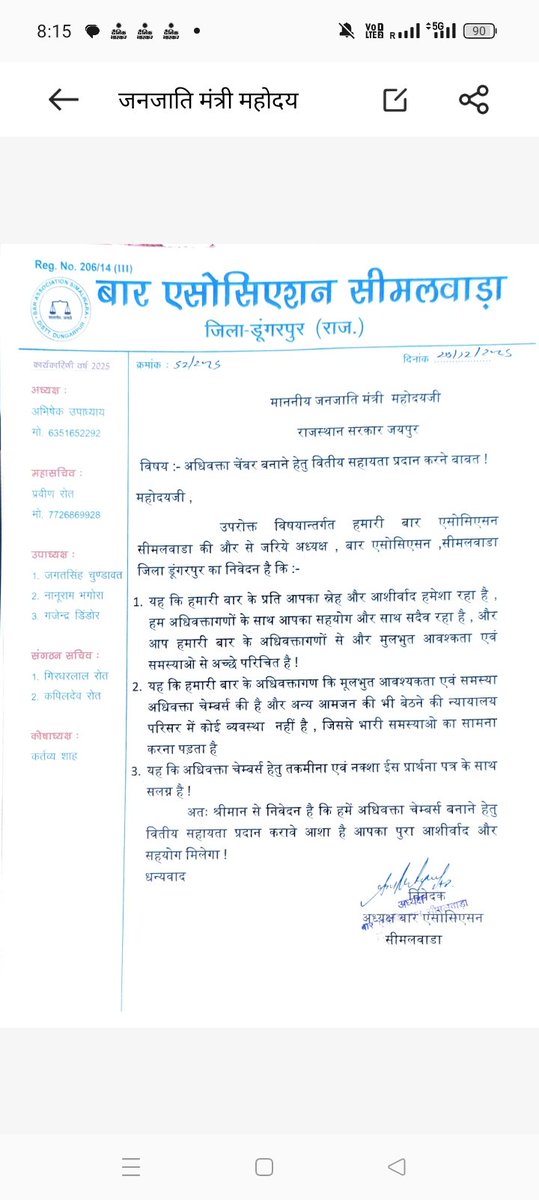 8:15
VoD LTE2 R 5G 90
जनजाति मंत्री महोदय
Reg. No. 206/14 (III)
बार एसोसिएशन सीमलवाड़ा
जिला-डूंगरपुर (राज.)
BAR ASSOCIATION SIMALWARA
DISTT. DUNGARPUR
कार्यकारिणी वर्ष 2025
क्रमांक : 52/2025
दिनांक 20/12/2025
अध्यक्ष :
अभिषेक उपाध्याय
मो. 6351652292
महासचिव :
प्रवीण रोत
मो. 7726869928
उपाध्यक्ष :
1. जगतसिंह चुण्डावत
2. नानूराम भगोरा
3. गजेन्द्र डिंडोर
संगठन सचिव :
1. गिरधरलाल रोत
2. कपिलदेव रोत
कोषाध्यक्ष :
कर्तव्य शाह
माननीय जनजाति मंत्री महोदयजी
राजस्थान सरकार जयपुर
विषय :- अधिवक्ता चेंबर बनाने हेतु वितीय सहायता प्रदान करने बावत !
महोदयजी ,
उपरोक्त विषयान्तर्गत हमारी बार एसोसिएसन
सीमलवाडा की और से जरिये अध्यक्ष , बार एसोसिएसन ,सीमलवाडा
जिला डूंगरपुर का निवेदन है कि :-
1. यह कि हमारी बार के प्रति आपका स्नेह और आशीर्वाद हमेशा रहा है ,
हम अधिवक्तागणों के साथ आपका सहयोग और साथ सदैव रहा है , और
आप हमारी बार के अधिवक्तागणों से और मुलभुत आवश्कता एवं
समस्याओ से अच्छे परिचित है !
2. यह कि हमारी बार के अधिवक्तागण कि मूलभुत आवश्यकता एवं समस्या
अधिवक्ता चेम्बर्स की है और अन्य आमजन की भी बेठने की न्यायालय
परिसर में कोई व्यवस्था नहीं है , जिससे भारी समस्याओ का सामना
करना पड़ता है
3. यह कि अधिवक्ता चेम्बर्स हेतु तकमीना एवं नक्शा ईस प्रार्थना पत्र के साथ
सलग्न है !
अतः श्रीमान से निवेदन है कि हमें अधिवक्ता चेम्बर्स बनाने हेतु
वितीय सहायता प्रदान करावे आशा है आपका पुरा आशीर्वाद और
सहयोग मिलेगा !
धन्यवाद
निवेदक
अध्यक्ष
अध्यक्ष बार एसोसिएसन
सीमलवाडा